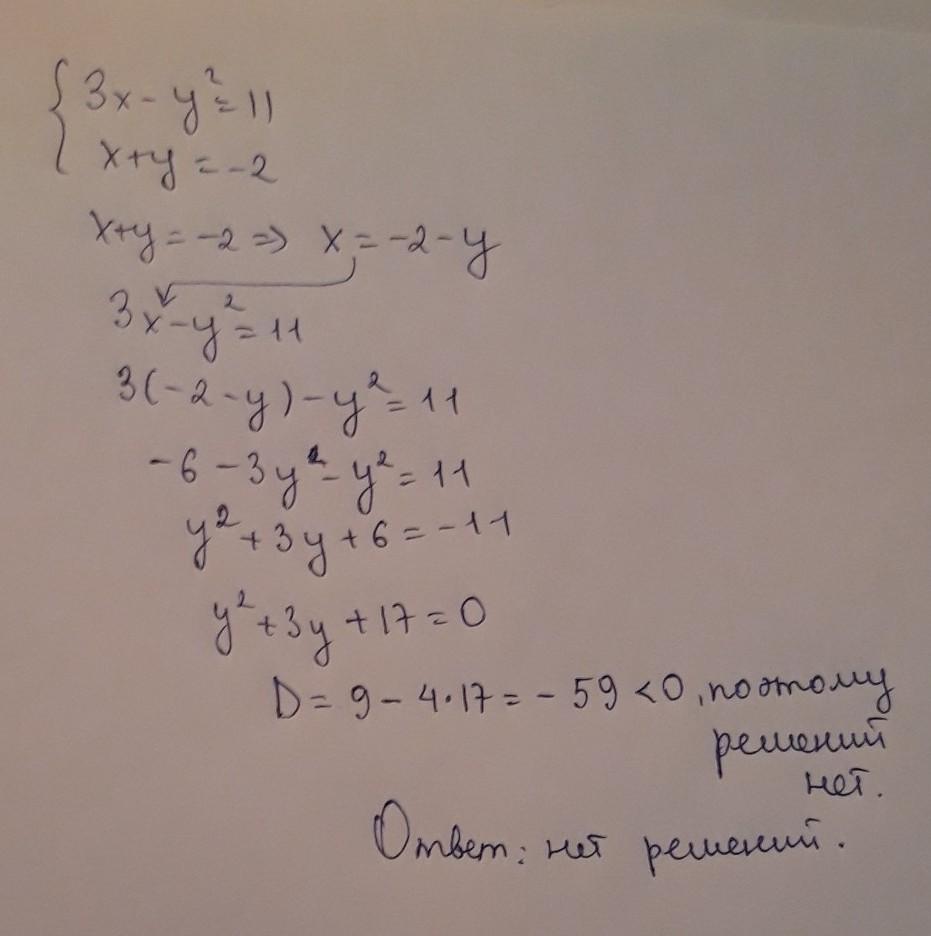 { 3x - y² = 11
x + y = -2
x+y = -2 ⇒ x = -2 - y
3x - y² = 11
3(-2 - y) - y² = 11
-6 - 3y - y² = 11
y² + 3y + 6 = -11
y² + 3y + 17 = 0
D = 9 - 4·17 = -59 < 0, поэтому
решений
нет.
Ответ: нет решений.